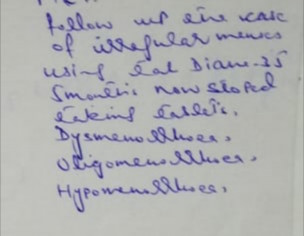 follow up the case
of irregular menses
using tab Diane-35
5 months now stoped
taking tablets.
Dysmenorrhoea,
Oligomenorrhoea,
Hypomenorrhoea,